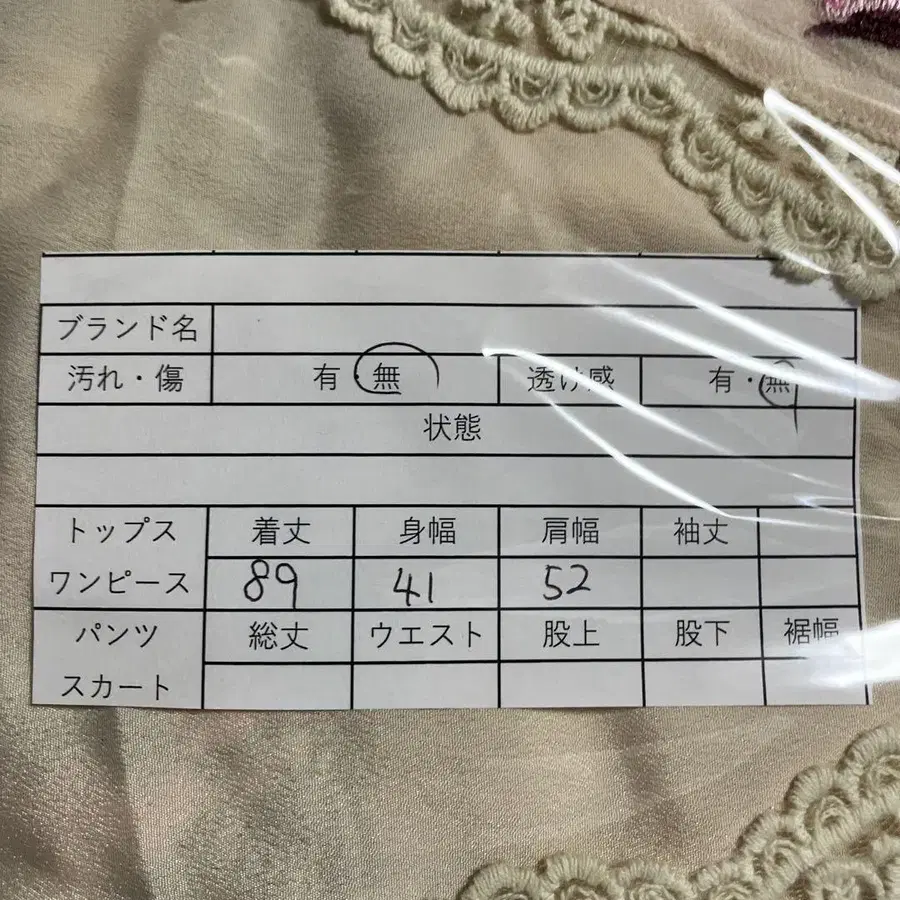 ブランド名
汚れ・傷 有・無 透け感 有・無
状態
トップス 着丈 身幅 肩幅 袖丈
ワンピース 89 41 52
パンツ 総丈 ウエスト 股上 股下 裾幅
スカート